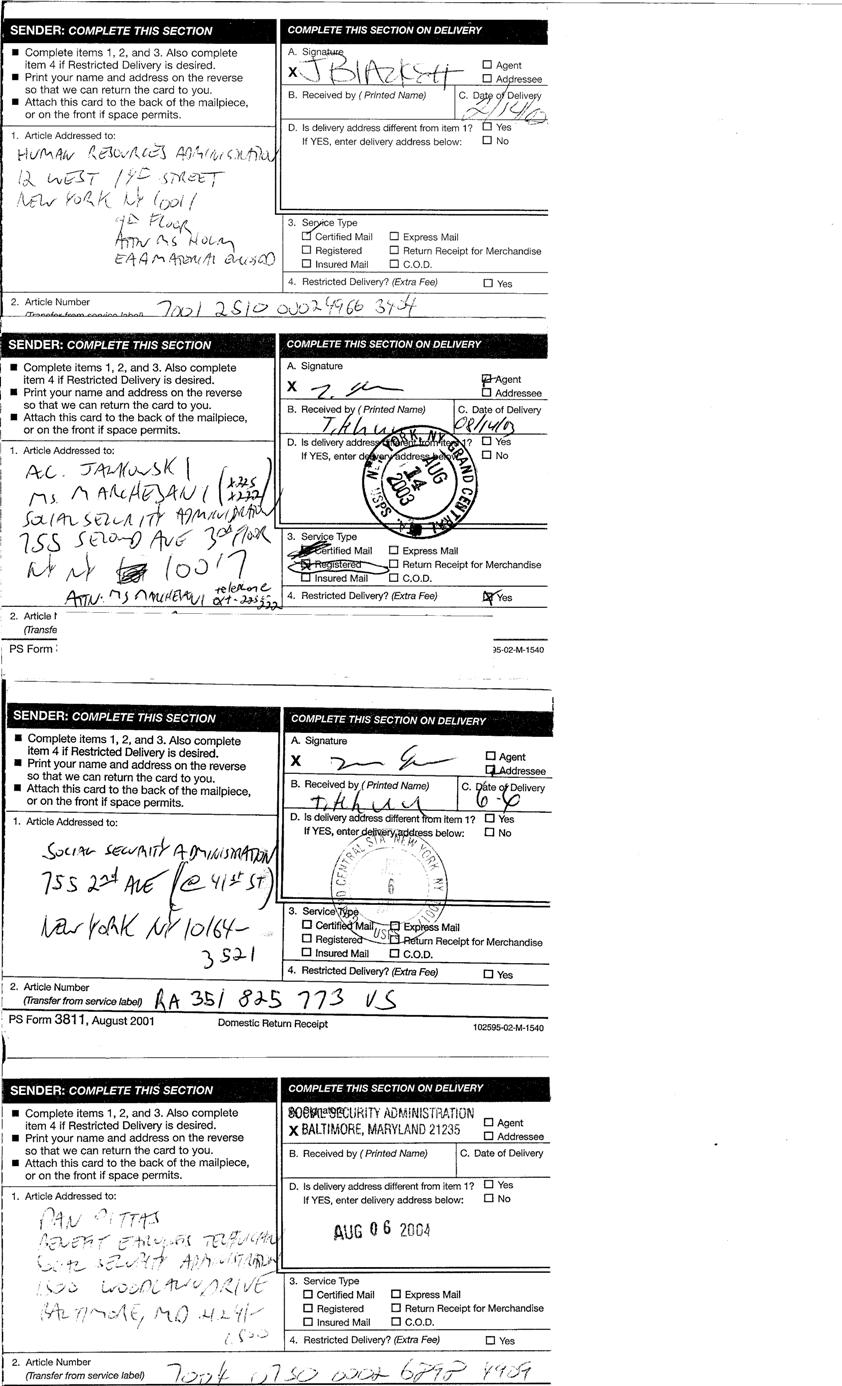 SENDER: COMPLETE THIS SECTION
■ Complete items 1, 2, and 3. Also complete
item 4 if Restricted Delivery is desired.
■ Print your name and address on the reverse
so that we can return the card to you.
■ Attach this card to the back of the mailpiece,
or on the front if space permits.
1. Article Addressed to:
HUMAN RESOURCES ADMINISTRATION
12 WEST 14TH STREET
NEW YORK NY 10011
4TH FLOOR
ATTN MS HOLM
EAA MATERIAL
2. Article Number
(Transfer from service label) 7001 2510 0002 4966 3404
COMPLETE THIS SECTION ON DELIVERY
A. Signature
X J Blackett
Agent
Addressee
B. Received by (Printed Name)
C. Date of Delivery
2/14/0
D. Is delivery address different from item 1? Yes
If YES, enter delivery address below: No
3. Service Type
Certified Mail Express Mail
Registered Return Receipt for Merchandise
Insured Mail C.O.D.
4. Restricted Delivery? (Extra Fee) Yes
SENDER: COMPLETE THIS SECTION
■ Complete items 1, 2, and 3. Also complete
item 4 if Restricted Delivery is desired.
■ Print your name and address on the reverse
so that we can return the card to you.
■ Attach this card to the back of the mailpiece,
or on the front if space permits.
1. Article Addressed to:
A.C. JANKOWSKI
MS. MARCHESANI (x225
x222)
SOCIAL SECURITY ADMINISTRATION
755 SECOND AVE 3RD FLOOR
NY NY 10017
ATTN: MS MARCHESANI telephone
ext-225
222
2. Article
(Transfe
PS Form
COMPLETE THIS SECTION ON DELIVERY
A. Signature
X
Agent
Addressee
B. Received by (Printed Name)
C. Date of Delivery
08/14/03
D. Is delivery address different from item 1? Yes
If YES, enter delivery address below: No
NEW YORK, NY GRAND CENTRAL STA. USPS
AUG
14
2003
3. Service Type
Certified Mail Express Mail
Registered Return Receipt for Merchandise
Insured Mail C.O.D.
4. Restricted Delivery? (Extra Fee) Yes
95-02-M-1540
SENDER: COMPLETE THIS SECTION
■ Complete items 1, 2, and 3. Also complete
item 4 if Restricted Delivery is desired.
■ Print your name and address on the reverse
so that we can return the card to you.
■ Attach this card to the back of the mailpiece,
or on the front if space permits.
1. Article Addressed to:
SOCIAL SECURITY ADMINISTRATION
755 2nd AVE (@ 41st ST)
NEW YORK NY 10164-
3521
2. Article Number
(Transfer from service label) RA 351 825 773 US
PS Form 3811, August 2001 Domestic Return Receipt 102595-02-M-1540
COMPLETE THIS SECTION ON DELIVERY
A. Signature
X
Agent
Addressee
B. Received by (Printed Name)
C. Date of Delivery
6-6
D. Is delivery address different from item 1? Yes
If YES, enter delivery address below: No
GRAND CENTRAL STA NEW YORK NY 10017
6
USPS
3. Service Type
Certified Mail Express Mail
Registered Return Receipt for Merchandise
Insured Mail C.O.D.
4. Restricted Delivery? (Extra Fee) Yes
SENDER: COMPLETE THIS SECTION
■ Complete items 1, 2, and 3. Also complete
item 4 if Restricted Delivery is desired.
■ Print your name and address on the reverse
so that we can return the card to you.
■ Attach this card to the back of the mailpiece,
or on the front if space permits.
1. Article Addressed to:
DAN PITTAS
BENEFIT EARNINGS TECHNICIAN
SOCIAL SECURITY ADMINISTRATION
1500 WOODLAWN DRIVE
BALTIMORE, MD 21241-
1500
2. Article Number
(Transfer from service label) 7004 0750 0002 6898 4909
COMPLETE THIS SECTION ON DELIVERY
A. Signature
SOCIAL SECURITY ADMINISTRATION
X BALTIMORE, MARYLAND 21235
Agent
Addressee
B. Received by (Printed Name)
C. Date of Delivery
D. Is delivery address different from item 1? Yes
If YES, enter delivery address below: No
AUG 06 2004
3. Service Type
Certified Mail Express Mail
Registered Return Receipt for Merchandise
Insured Mail C.O.D.
4. Restricted Delivery? (Extra Fee) Yes